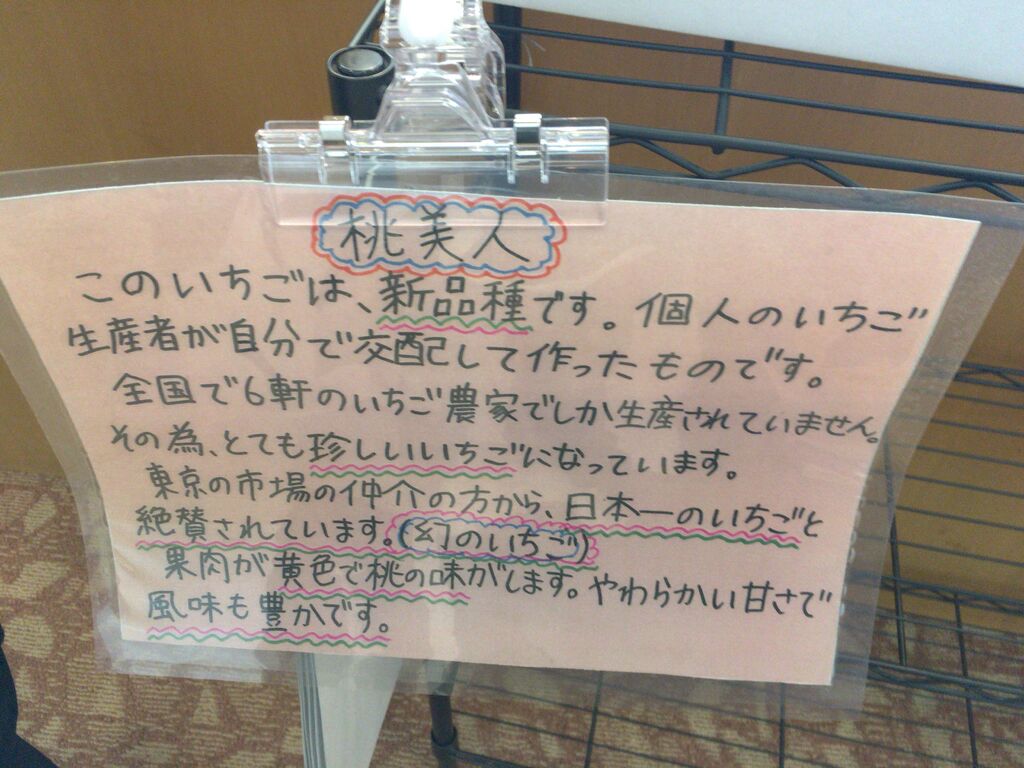 桃美人
このいちごは、新品種です。個人のいちご
生産者が自分で交配して作ったものです。
全国で6軒のいちご農家でしか生産されていません。
その為、とても珍しいいちごになっています。
東京の市場の仲介の方から、日本一のいちごと
絶賛されています。(幻のいちご)
果肉が黄色で桃の味がします。やわらかい甘さで
風味も豊かです。